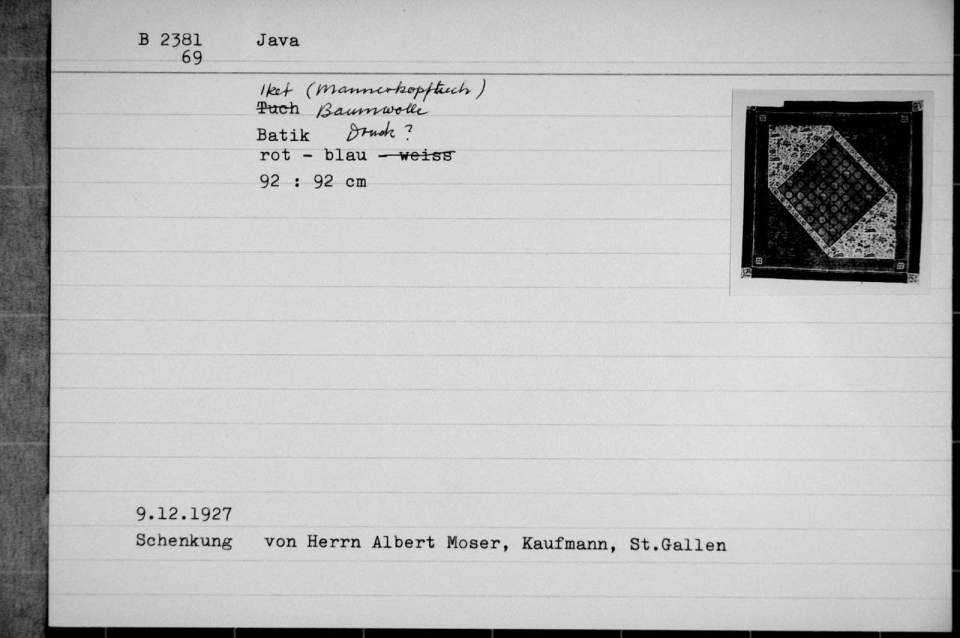 B 2381 Java
69
Iket (Männerkopftuch)
Tuch Baumwolle
Batik Druck?
rot - blau - weiss
92 : 92 cm
9.12.1927
Schenkung von Herrn Albert Moser, Kaufmann, St.Gallen